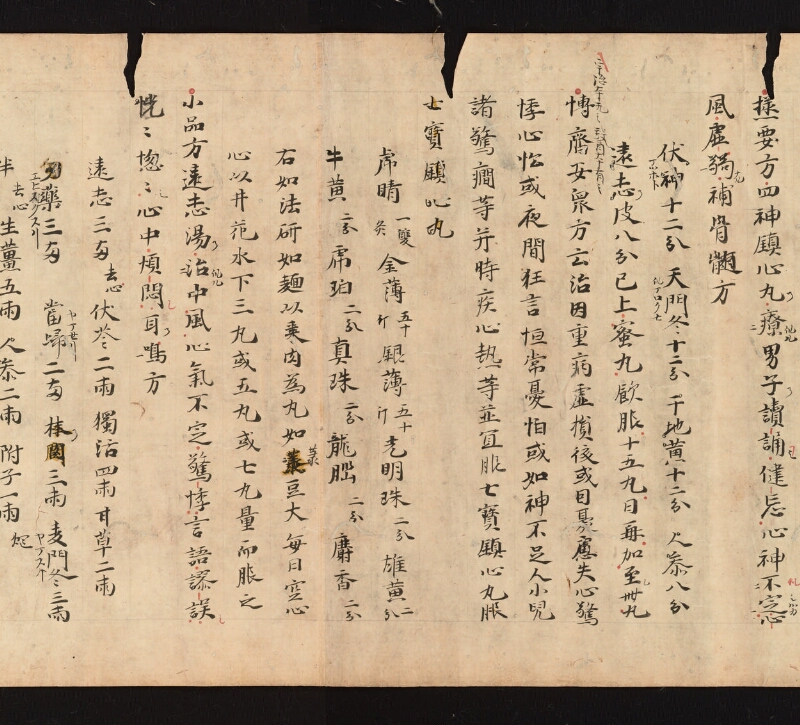 拯要方曰神鎮心丸療男子讀誦健忘心神不定心
風虛猲補骨髄方
伏神十二分 天門冬十二分 干地黄十二分 人参八分
遠志皮八分 已上蜜丸飲服十五丸日再加至卅丸
博濟安衆方云治因重病虛損後或因憂失心驚
悸心忪或夜間狂言恒常憂怕或如神不足人小兒
諸驚癇等并時疾心熱等並宜服七寶鎮心丸服
七寶鎮心丸
虎睛 一雙 炙 金薄 五十斤 銀薄 五十斤 光明珠 二分 雄黄 二分
牛黄 二分 虎珀 二分 真珠 二分 龍脳 二分 麝香 二分
右如法研如麺以棗肉為丸如菉豆大每日空心
心以井花水下三丸或五丸或七丸量而服之
小品方遠志湯治中風心氣不定驚悸言語謬誤
恍〻惚〻心中煩悶耳鳴方
遠志三两 去心 伏苓二兩 獨活四兩 甘草二兩
藥三两 當歸二两 桂 三兩 麦門冬三兩
半 去心 生薑五兩 人参二兩 附子一兩 炮